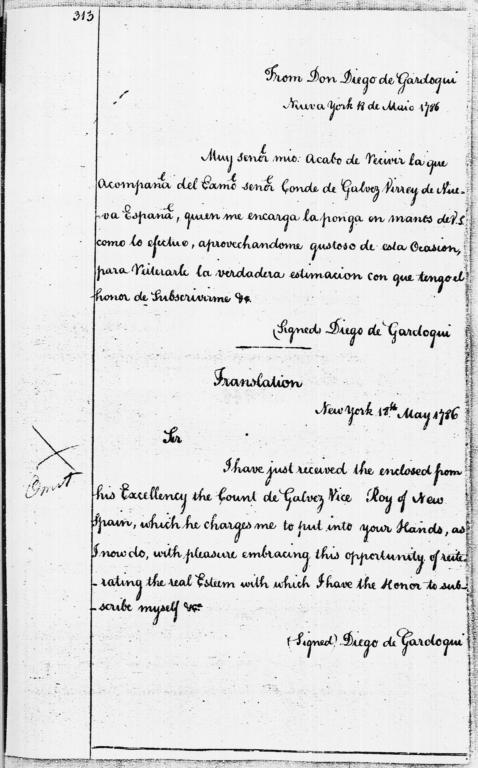 313
From Don Diego de Gardoqui
Nueva York 18 de Maio 1786
Muy señor mio: Acabo de Recivir la que
Acompaña del Exmo señor Conde de Galvez Virrey de Nue-
-va España, quien me encarga la ponga en manos de V.S.
como lo efectuo, aprovechandome gustoso de esta Ocasion,
para Reiterarle la verdadera estimacion con que tengo el
honor de Subscrivirme &c.
(Signed) Diego de Gardoqui
Translation
New York 18th May 1786
Sir
I have just received the enclosed from
Omit
his Excellency the Count de Galvez Vice Roy of New
Spain, which he charges me to put into your Hands, as
I now do, with pleasure embracing this opportunity of reite-
-rating the real Esteem with which I have the Honor to sub-
-scribe myself &c.
(Signed) Diego de Gardoqui